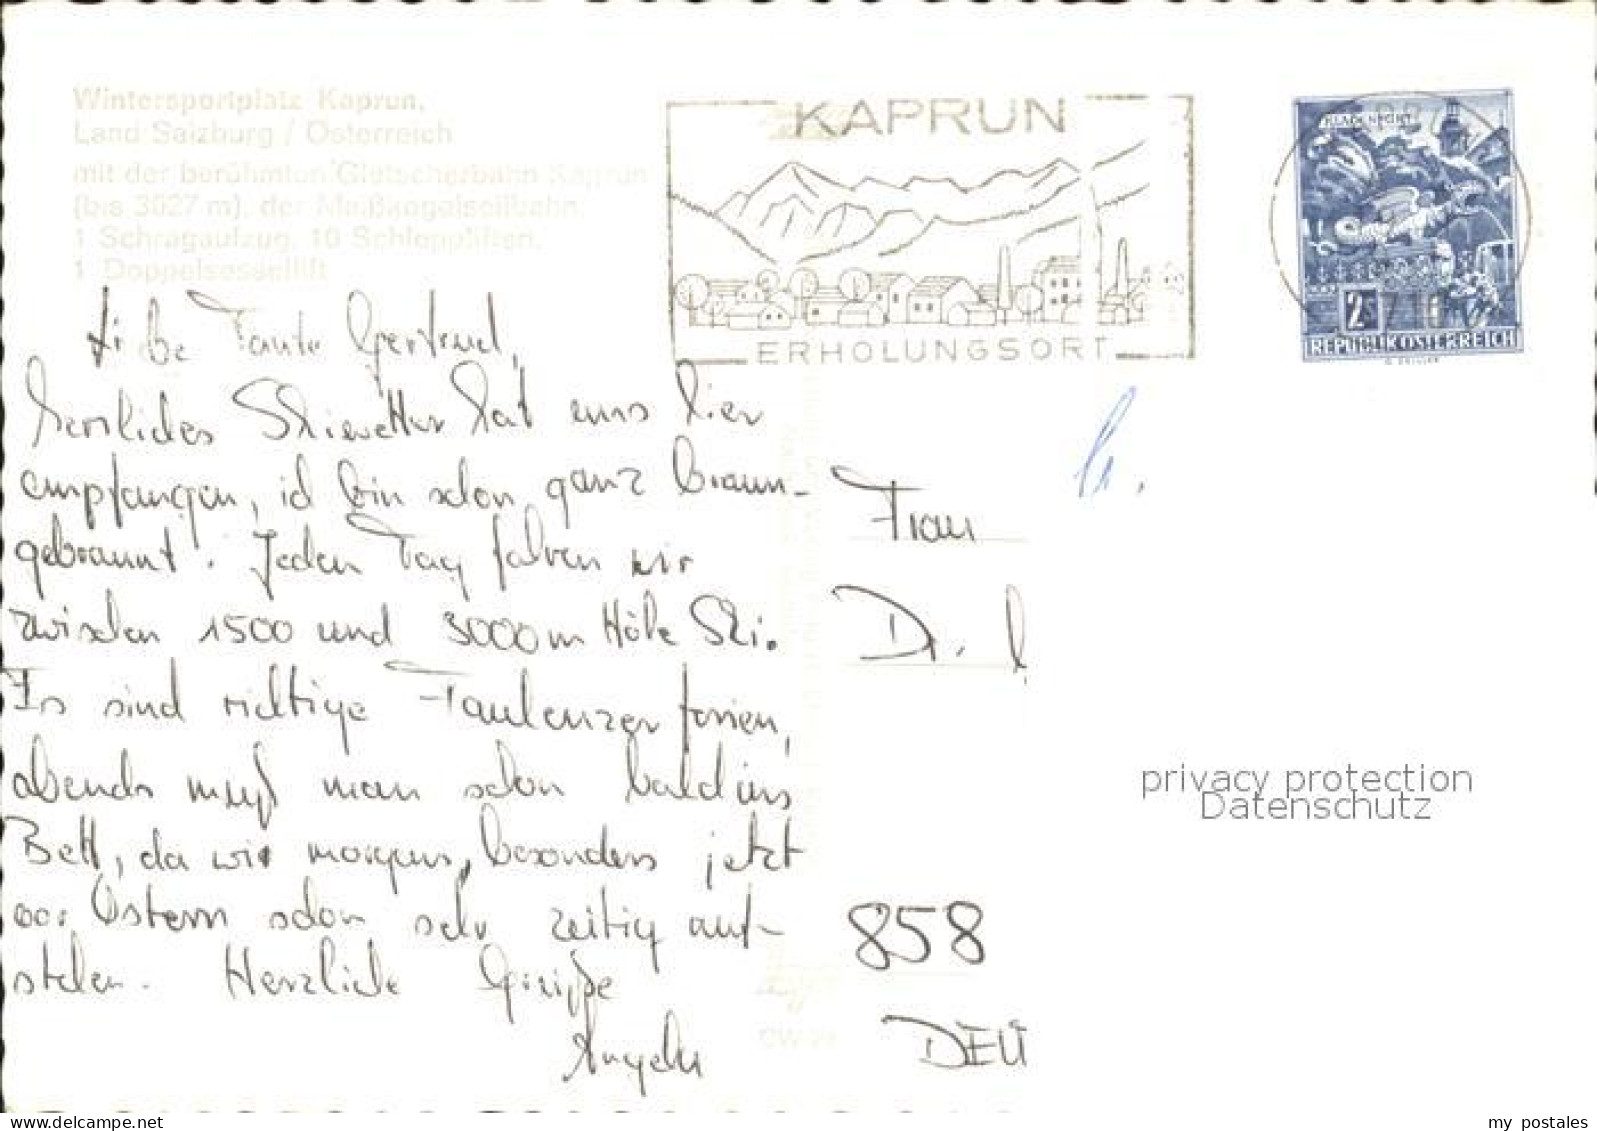 Wintersportplatz Kaprun,
Land Salzburg / Österreich
mit der berühmten Gletscherbahn Kaprun
(bis 3027 m), der Maiskogelseilbahn,
1 Schrägaufzug, 10 Schlepplften,
1 Doppelsessellift
KAPRUN
ERHOLUNGSORT
KLAGENFURT
2
REPUBLIK ÖSTERREICH
5710
Liebe Tante Gertrud,
herrliches Skiwetter hat uns hier
empfangen, ich bin schon ganz braun-
gebrannt! Jeden Tag fahren wir
zwischen 1500 und 3000 m Höhe Ski.
Es sind richtige Faulenzerferien,
abends muß man schon bald ins
Bett, da wir morgens, besonders jetzt
vor Ostern schon sehr zeitig auf-
stehen. Herzliche Grüße
Angela
Frau
Dr.
858
DEU
privacy protection
Datenschutz
www.delcampe.net
my_postales